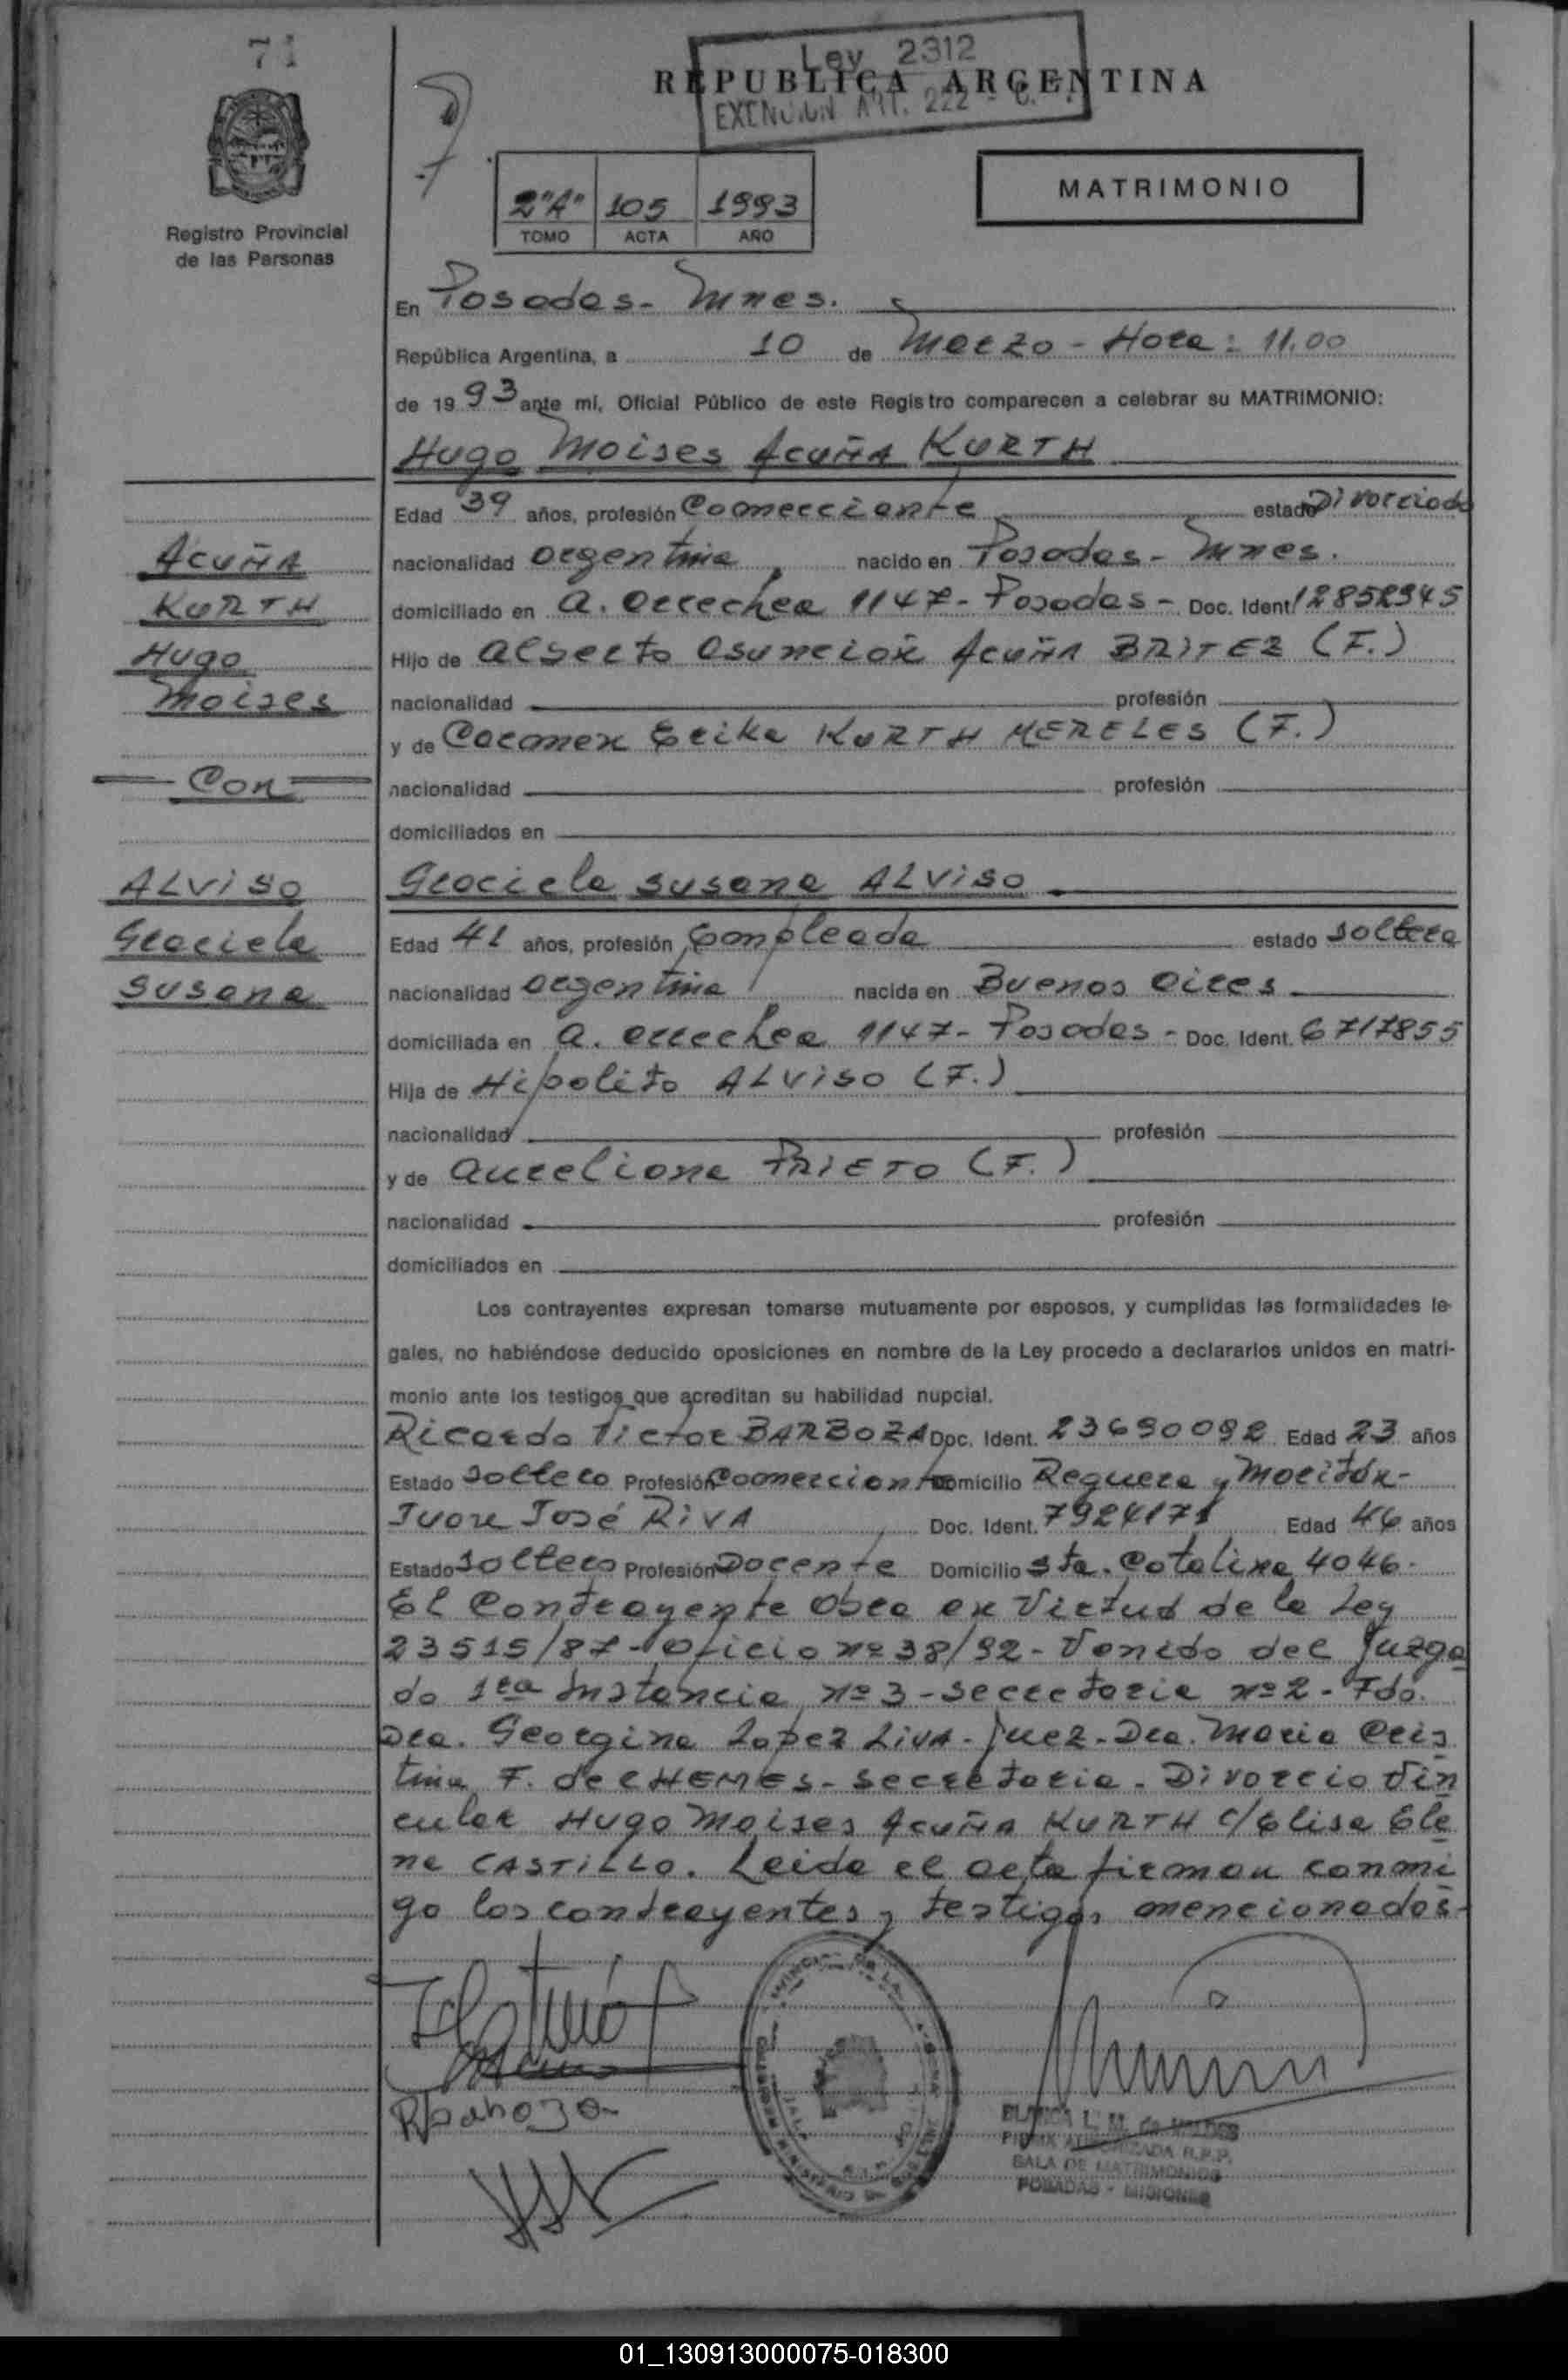 71
Ley 2312
REPUBLICA ARGENTINA
EXENCION ART. 222 - C.
MATRIMONIO
2"A" 105 1993
TOMO ACTA AÑO
Registro Provincial
de las Personas
En Posadas - Mnes.
República Argentina, a 10 de Marzo - Hora: 11.00
de 1993 ante mí, Oficial Público de este Registro comparecen a celebrar su MATRIMONIO:
Hugo Moises Acuña KURTH
Edad 39 años, profesión Comerciante estado Divorciado
Acuña
nacionalidad argentina nacido en Posadas - Mnes.
KURTH
domiciliado en A. Arrechea 1147 - Posadas - Doc. Ident. 12852945
Hugo
Hijo de Alberto Asunción Acuña BRITEZ (F.)
Moises
nacionalidad profesión
y de Carmen Erika KURTH MERELES (F.)
Con
nacionalidad profesión
domiciliados en
ALViSO
Graciela Susana ALViSO
Graciela
Edad 41 años, profesión Empleada estado soltera
Susana
nacionalidad argentina nacida en Buenos Aires
domiciliada en A. Arrechea 1147 - Posadas - Doc. Ident. 6717855
Hija de Hipolito ALViSO (F.)
nacionalidad profesión
y de Aureliana PRIETO (F.)
nacionalidad profesión
domiciliados en
Los contrayentes expresan tomarse mutuamente por esposos, y cumplidas las formalidades le-
gales, no habiéndose deducido oposiciones en nombre de la Ley procedo a declararlos unidos en matri-
monio ante los testigos que acreditan su habilidad nupcial.
Ricardo Victor BARBOZA Doc. Ident. 23690092 Edad 23 años
Estado soltero Profesión Comerciante Domicilio Reguera y Moritán -
Juan José RiVA Doc. Ident. 7924171 Edad 46 años
Estado soltero Profesión Docente Domicilio Sta. Catalina 4046 -
El Contrayente obra en Virtud de la Ley
23515/87 - Oficio nº 38/92 - Venido del Juzga
do 1era Instancia nº 3 - Secretaria nº 2 - Fdo.
Dra. Georgina Lopez Liva - Juez - Dra. Maria Cris
tina F. de CHEMES - Secretaria - Divorcio Vin
cular Hugo Moises Acuña KURTH c/ Elisa Ele
na CASTiLLO. Leida el acta firman conmi
go los contrayentes y testigos mencionados -
BLANCA L. M. de VALDES
FIRMA AUTORIZADA R.P.P.
SALA DE MATRIMONIOS
POSADAS - MISIONES
01_130913000075-018300